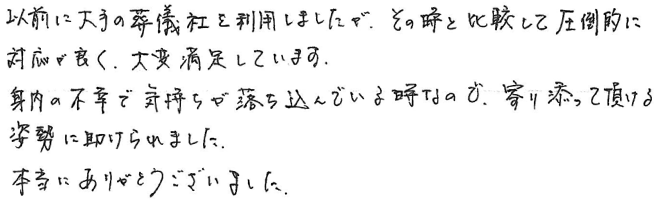 以前に大手の葬儀社を利用しましたが、その時と比較して圧倒的に
対応が良く、大変満足しています。
身内の不幸で気持ちが落ち込んでいる時なので、寄り添って頂ける
姿勢に助けられました。
本当にありがとうございました。